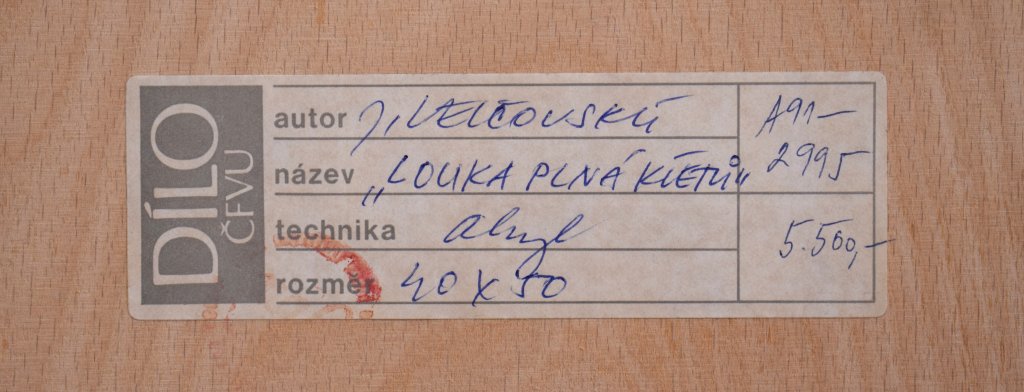 DÍLO
ČFVU
autor J. VELČOVSKÝ
název „LOUKA PLNÁ KVĚTŮ“
technika akryl
rozměr 40 x 50
A91–
2995
5.500,–